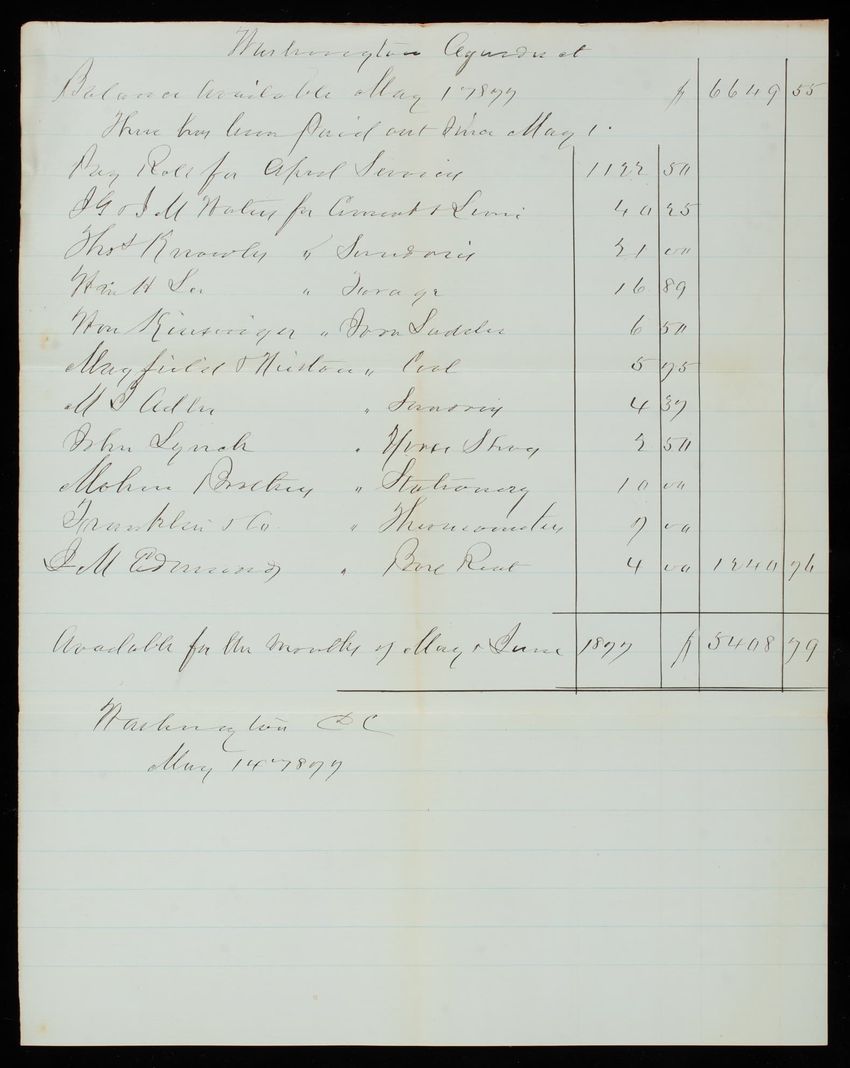 Washington Aqueduct
Balance available May 1st 1877 $ 6649 55
There has been Paid out since May 1.
Pay Roll for April Services 1122 50
J G & J M Waters for Cement & Lime 40 25
Thos Knowles " Sundries 21 00
Wm H Lee " Forage 16 89
Wm Kinsinger " Iron Ladder 6 50
Mayfield & Hieston " Coal 5 75
M I Adler " Sundries 4 37
John Lynch " Horse Shoeg 2 50
Mohun Brothers " Stationery 10 00
Franklin & Co " Thermometers 7 00
J M Edmunds " Box Rent 4 00 1240 76
Available for the months of May & June 1877 $ 5408 79
Washington D C
May 14th 1877